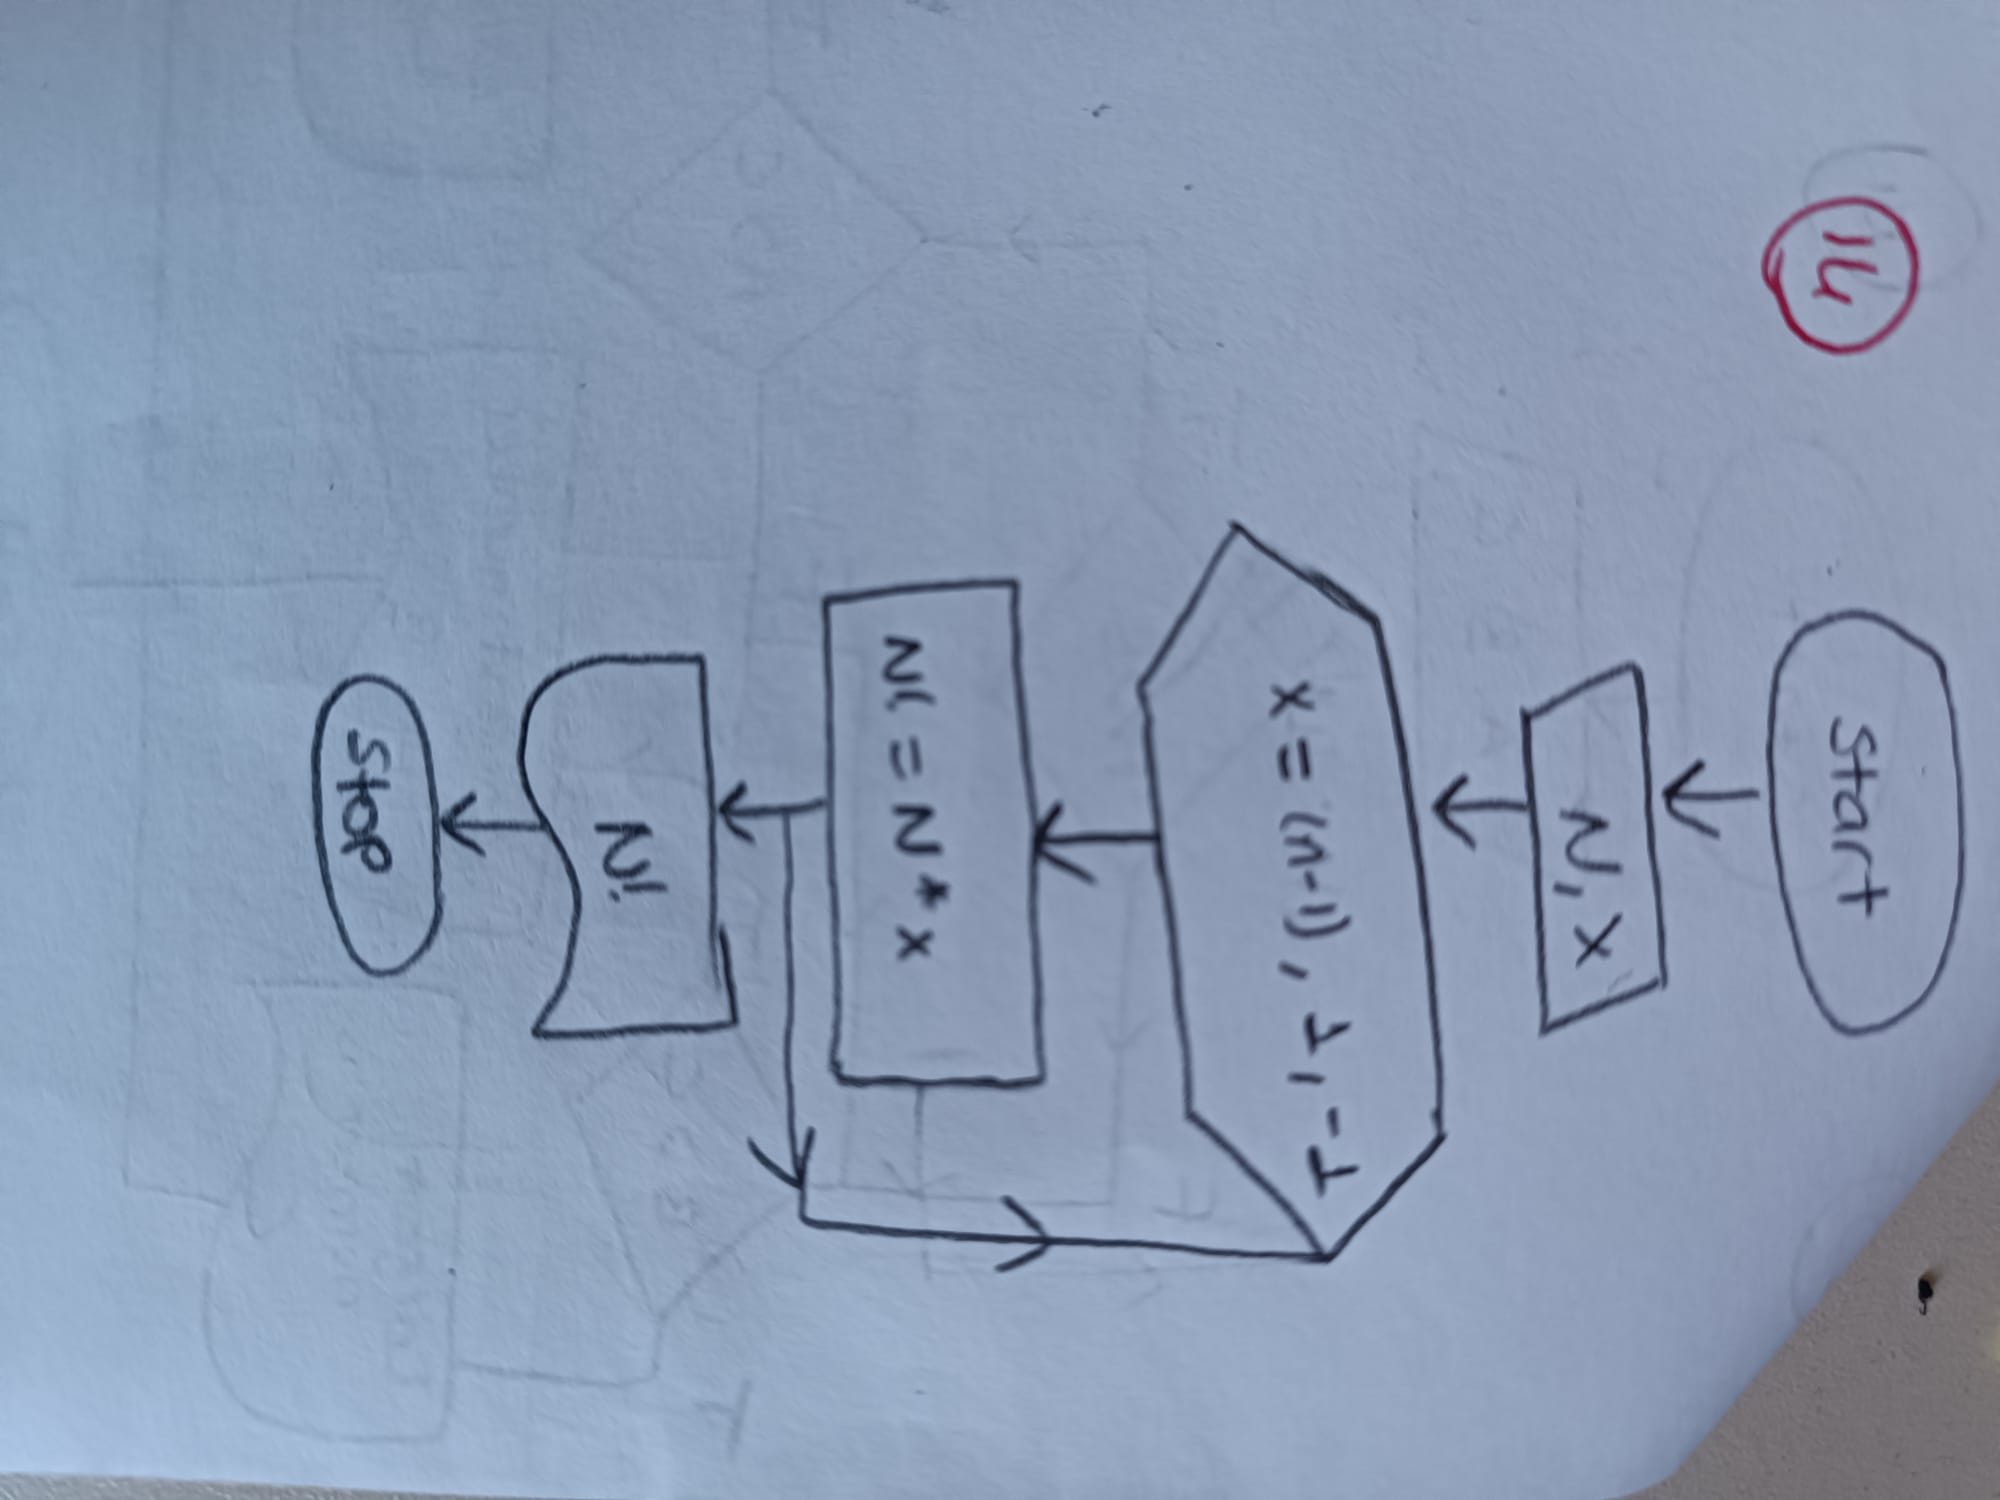 14
Start
N, X
X = (n-1), 1, -1
N! = N * X
N!
Stop